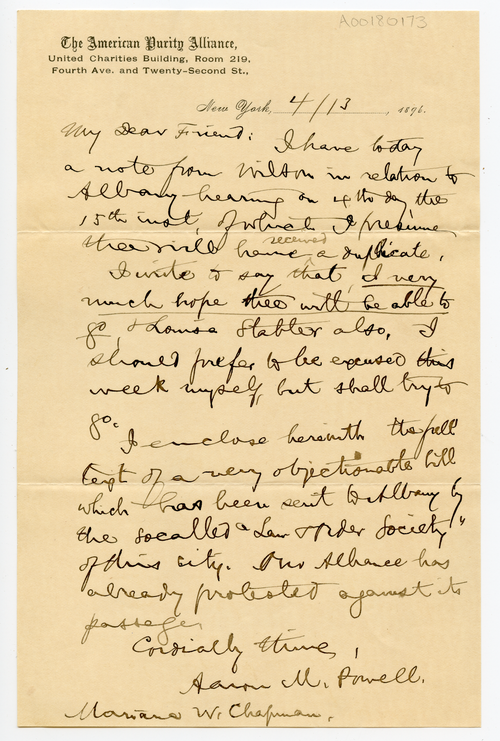 A00180173
The American Purity Alliance,
United Charities Building, Room 219,
Fourth Ave. and Twenty-Second St.,
New York, 4/13, 1896.
My Dear Friend: I have today
a note from Wilson in relation to
Albany hearing on 4th day the
15th inst, of which I presume
thee will have received a duplicate.
I write to say that, I very
much hope thee will be able to
go, & Louisa Stabler also. I
should prefer to be excused this
week myself, but shall try to
go.
I enclose herewith the full
text of a very objectionable bill
which has been sent to Albany by
the so called "Law & Order Society"
of this city. Our Alliance has
already protested against its
passage.
Cordially thine,
Aaron M. Powell.
Mariana W. Chapman.